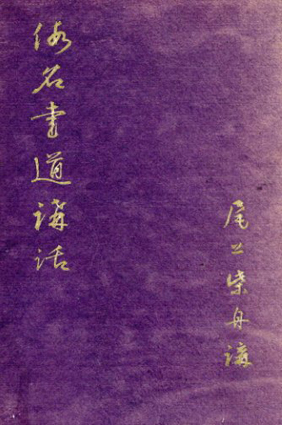 尾上柴舟講
仮名書道講話